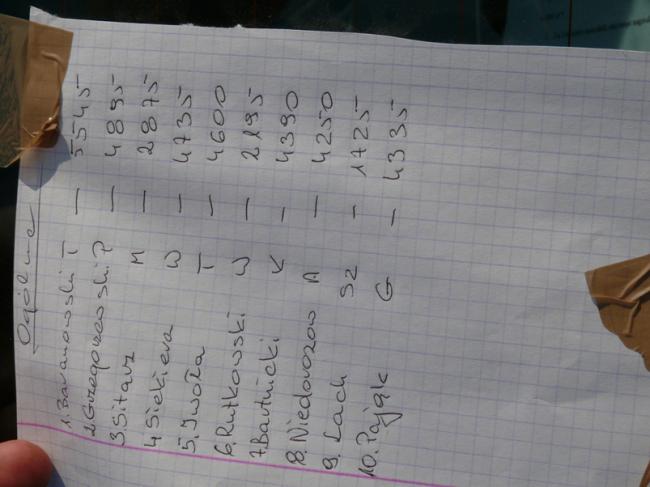 Ogólne
1. Baranowski T — 5545
2. Grzegorzewski P — 4895
3. Sitarz M — 2875
4. Siekiera W — 4735
5. Iwoła T — 4600
6. Rutkowski W — 2195
7. Bartnicki K — 4390
8. Niedorozow A — 4250
9. Lach SZ — 1725
10. Pająk G — 4335